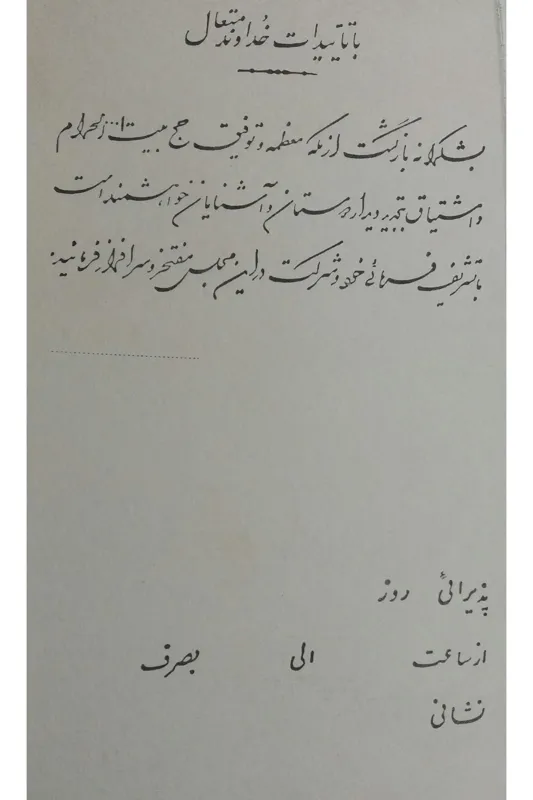 با تأییدات خداوند متعال
بشکرانه بازگشت از مکه معظمه و توفیق حج بیت الله الحرام
و اشتیاق بتجدید دیدار دوستان و آشنایان خواهشمند است
با تشریف فرمائی خود و شرکت در این مجلس مفتخر و سرافراز فرمائید.
پذیرائی روز
از ساعت الی بصرف
نشانی